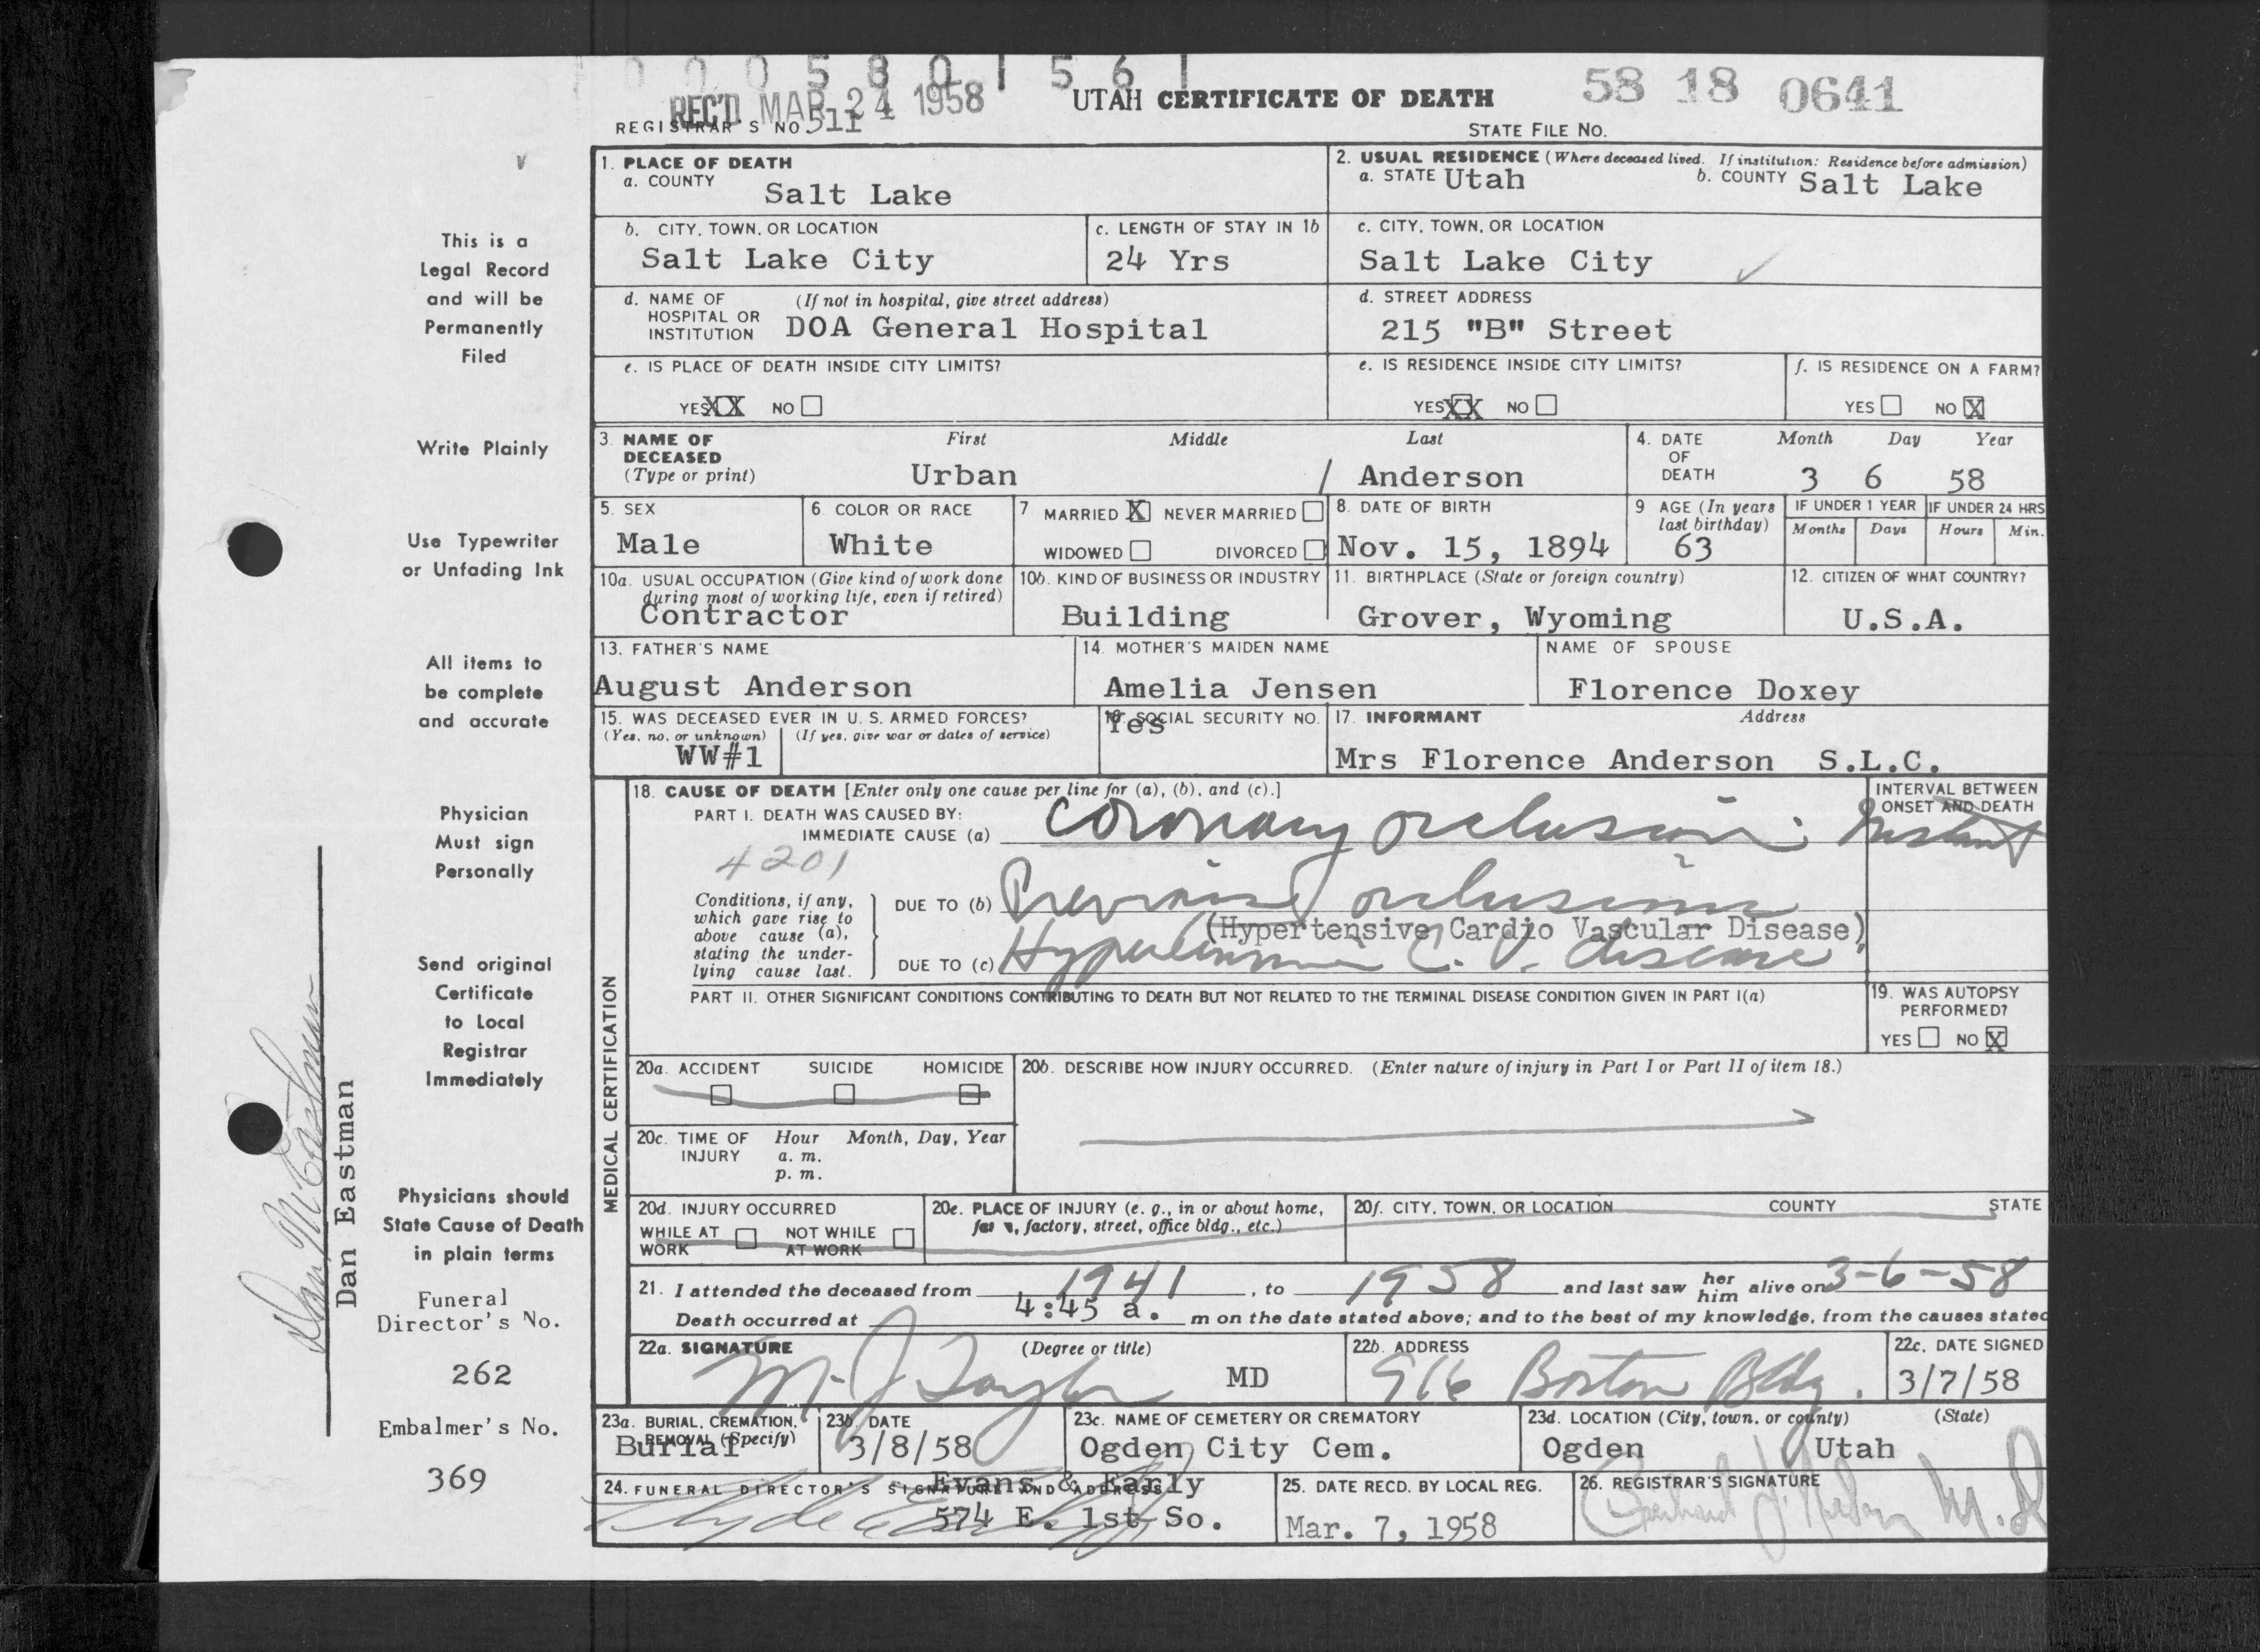 0 0 0 5 8 0 1 5 6 1
REC'D MAR 24 1958
UTAH CERTIFICATE OF DEATH
58 18 0641
REGISTRAR'S NO 511
STATE FILE NO.
1. PLACE OF DEATH
a. COUNTY Salt Lake
2. USUAL RESIDENCE (Where deceased lived. If institution: Residence before admission)
a. STATE Utah b. COUNTY Salt Lake
b. CITY, TOWN, OR LOCATION
Salt Lake City
c. LENGTH OF STAY IN 1b
24 Yrs
c. CITY, TOWN, OR LOCATION
Salt Lake City
d. NAME OF HOSPITAL OR INSTITUTION (If not in hospital, give street address)
DOA General Hospital
d. STREET ADDRESS
215 "B" Street
e. IS PLACE OF DEATH INSIDE CITY LIMITS?
YES XX NO
e. IS RESIDENCE INSIDE CITY LIMITS?
YES XX NO
f. IS RESIDENCE ON A FARM?
YES NO X
3. NAME OF DECEASED (Type or print)
First Middle Last
Urban / Anderson
4. DATE OF DEATH
Month Day Year
3 6 58
5. SEX
Male
6. COLOR OR RACE
White
7 MARRIED X NEVER MARRIED
WIDOWED DIVORCED
8. DATE OF BIRTH
Nov. 15, 1894
9 AGE (In years last birthday)
63
IF UNDER 1 YEAR
Months Days
IF UNDER 24 HRS
Hours Min.
10a. USUAL OCCUPATION (Give kind of work done during most of working life, even if retired)
Contractor
10b. KIND OF BUSINESS OR INDUSTRY
Building
11. BIRTHPLACE (State or foreign country)
Grover, Wyoming
12. CITIZEN OF WHAT COUNTRY?
U.S.A.
13. FATHER'S NAME
August Anderson
14. MOTHER'S MAIDEN NAME
Amelia Jensen
NAME OF SPOUSE
Florence Doxey
15. WAS DECEASED EVER IN U. S. ARMED FORCES?
(Yes, no, or unknown) (If yes, give war or dates of service)
WW#1
16. SOCIAL SECURITY NO.
Yes
17. INFORMANT Address
Mrs Florence Anderson S.L.C.
MEDICAL CERTIFICATION
18. CAUSE OF DEATH [Enter only one cause per line for (a), (b), and (c).]
PART I. DEATH WAS CAUSED BY:
IMMEDIATE CAUSE (a) Coronary occlusion
INTERVAL BETWEEN ONSET AND DEATH
Instant
4201
Conditions, if any, which gave rise to above cause (a), stating the underlying cause last.
DUE TO (b) Previous occlusions
(Hypertensive Cardio Vascular Disease)
DUE TO (c) Hypertensive C. V. disease
PART II. OTHER SIGNIFICANT CONDITIONS CONTRIBUTING TO DEATH BUT NOT RELATED TO THE TERMINAL DISEASE CONDITION GIVEN IN PART I(a)
19. WAS AUTOPSY PERFORMED?
YES NO X
20a. ACCIDENT SUICIDE HOMICIDE
20b. DESCRIBE HOW INJURY OCCURRED. (Enter nature of injury in Part I or Part II of item 18.)
20c. TIME OF INJURY Hour Month, Day, Year
a. m.
p. m.
20d. INJURY OCCURRED
WHILE AT WORK NOT WHILE AT WORK
20e. PLACE OF INJURY (e. g., in or about home, farm, factory, street, office bldg., etc.)
20f. CITY, TOWN, OR LOCATION COUNTY STATE
21. I attended the deceased from 1941, to 1958 and last saw her him alive on 3-6-58
Death occurred at 4:45 a. m on the date stated above; and to the best of my knowledge, from the causes stated
22a. SIGNATURE (Degree or title)
M. J. Taylor MD
22b. ADDRESS
916 Boston Bldg.
22c. DATE SIGNED
3/7/58
23a. BURIAL, CREMATION, REMOVAL (Specify)
Burial
23b. DATE
3/8/58
23c. NAME OF CEMETERY OR CREMATORY
Ogden City Cem.
23d. LOCATION (City, town, or county) (State)
Ogden Utah
24. FUNERAL DIRECTOR'S SIGNATURE AND ADDRESS
Evans & Early
574 E. 1st So.
25. DATE RECD. BY LOCAL REG.
Mar. 7, 1958
26. REGISTRAR'S SIGNATURE
M.D
This is a
Legal Record
and will be
Permanently
Filed
Write Plainly
Use Typewriter
or Unfading Ink
All items to
be complete
and accurate
Physician
Must sign
Personally
Send original
Certificate
to Local
Registrar
Immediately
Physicians should
State Cause of Death
in plain terms
Funeral
Director's No.
262
Embalmer's No.
369
Dan Eastman